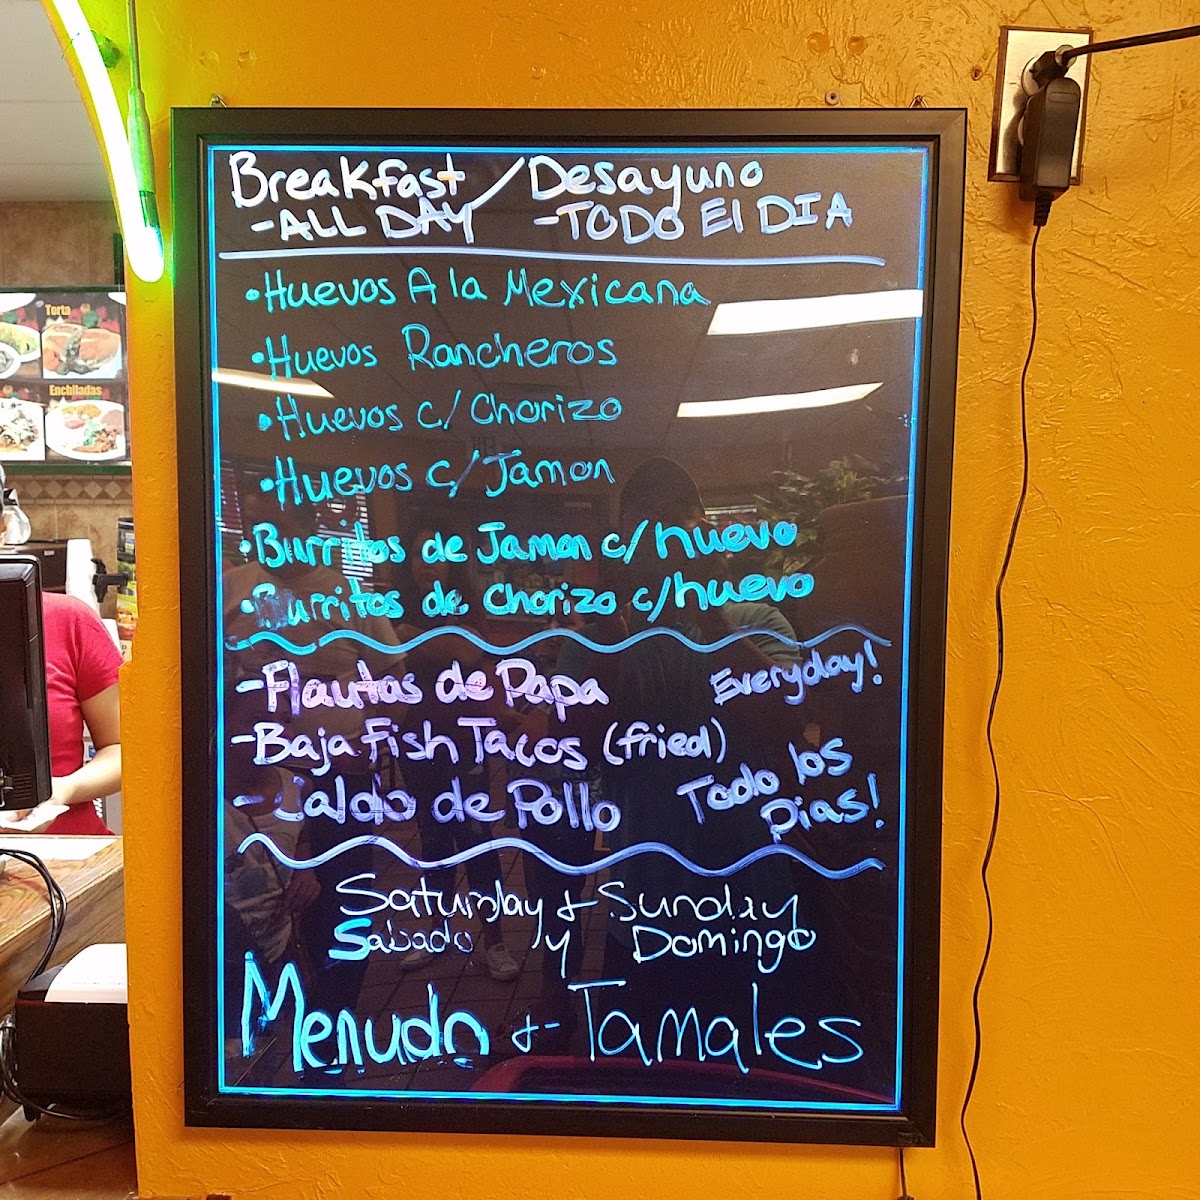 Breakfast / Desayuno
-ALL DAY -TODO El DIA
•Huevos A la Mexicana
•Huevos Rancheros
•Huevos c/ Chorizo
•Huevos c/ Jamon
•Burritos de Jamon c/ huevo
•Burritos de Chorizo c/ huevo
-Flautas de Papa
-Baja Fish Tacos (fried)
-Caldo de Pollo
Everyday!
Todo los
Dias!
Saturday & Sunday
Sabado y Domingo
Menudo & Tamales
Torta
Enchiladas